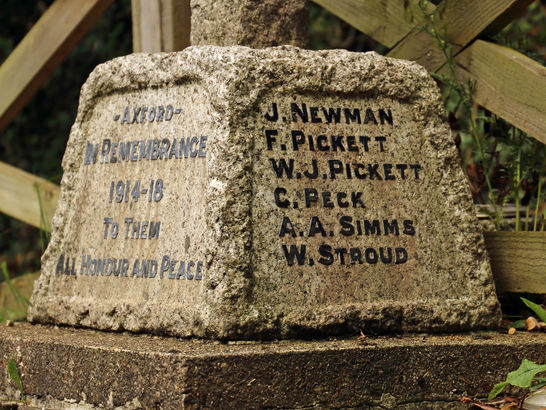 -AXFORD-
IN REMEMBRANCE
1914-18
TO THEM
ALL HONOUR AND PEACE
J. NEWMAN
F. PICKETT
W. J. PICKETT
C. PECK
A. A. SIMMS
W. STROUD